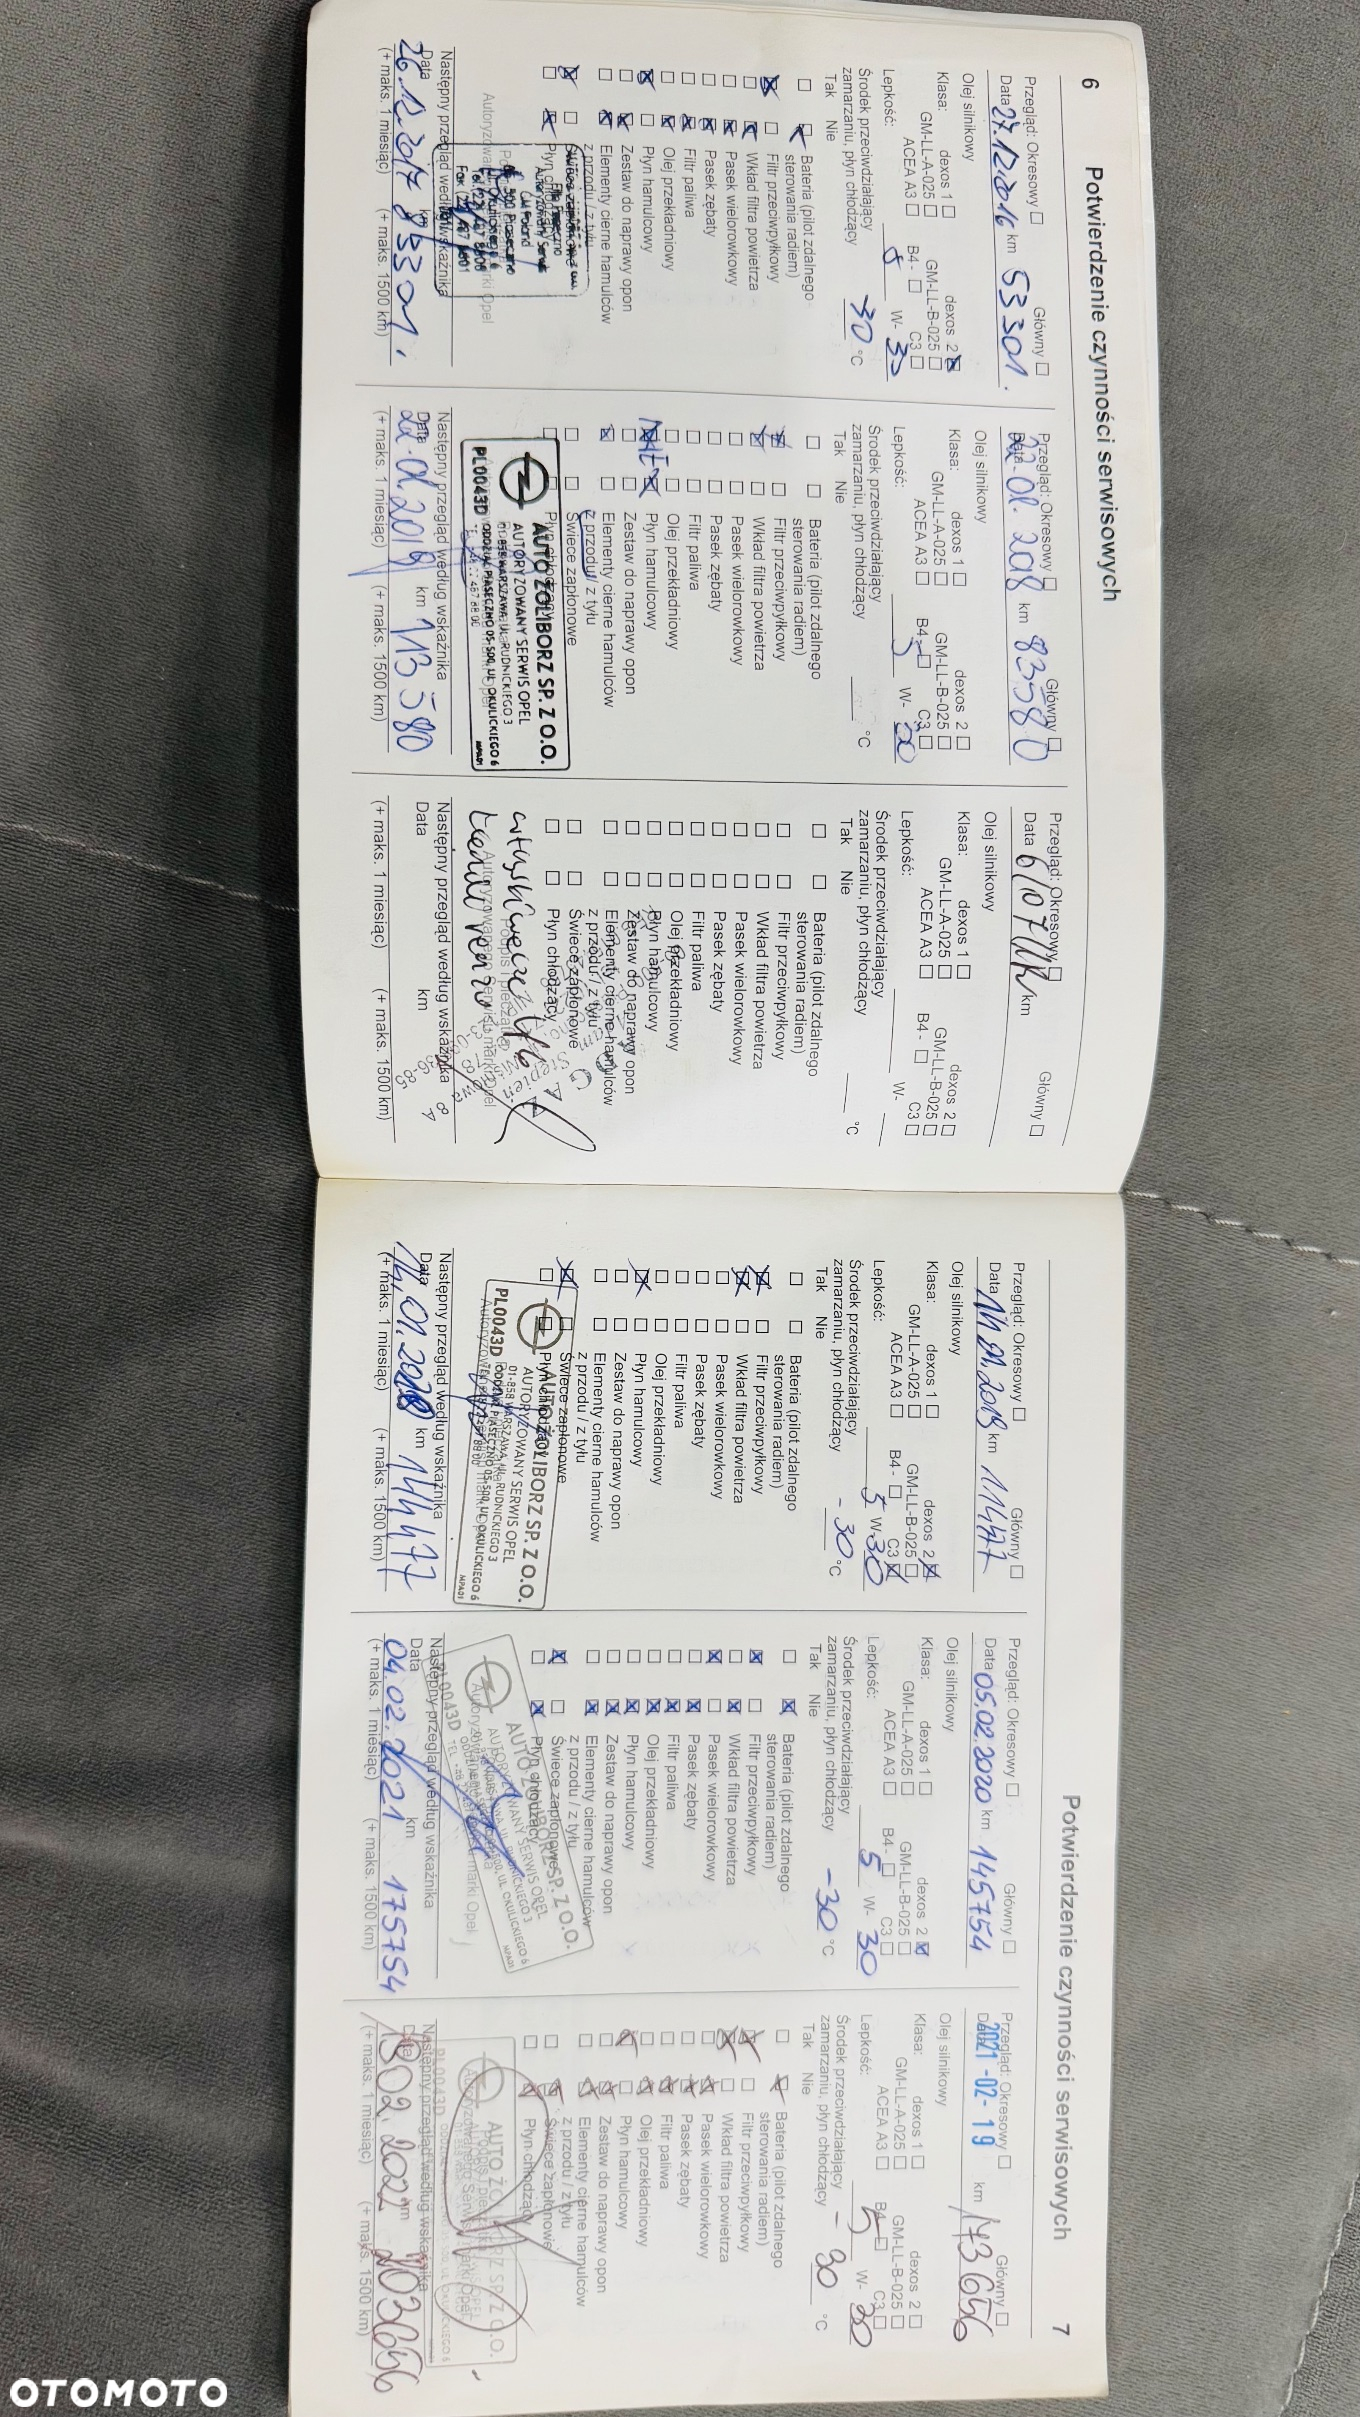 6
Potwierdzenie czynności serwisowych
Przegląd: Okresowy ☐ Główny ☐
Data 27.12.2016 km 53301.
Olej silnikowy
Klasa: dexos 1 ☐ dexos 2 ☒
GM-LL-A-025 ☐ GM-LL-B-025 ☐
ACEA A3 ☐ B4 - ☐ C3 ☐
Lepkość: 5 W- 30
Środek przeciwdziałający
zamarzaniu, płyn chłodzący -30 °C
Tak Nie
☐ ☒ Bateria (pilot zdalnego
sterowania radiem)
☒ ☐ Filtr przeciwpyłkowy
☐ ☒ Wkład filtra powietrza
☐ ☒ Pasek wielorowkowy
☐ ☒ Pasek zębaty
☐ ☒ Filtr paliwa
☐ ☒ Olej przekładniowy
☒ ☐ Płyn hamulcowy
☐ ☒ Zestaw do naprawy opon
☐ ☒ Elementy cierne hamulców
z przodu / z tyłu
☒ ☐ Świece zapłonowe
☐ ☒ Płyn chłodzący
Następny przegląd według wskaźnika
Data 26.12.2017 km 83301.
(+ maks. 1 miesiąc) (+ maks. 1500 km)
Przegląd: Okresowy ☐ Główny ☐
Data 22.01.2018 km 83580
Olej silnikowy
Klasa: dexos 1 ☐ dexos 2 ☐
GM-LL-A-025 ☐ GM-LL-B-025 ☐
ACEA A3 ☐ B4 - ☐ C3 ☐
Lepkość: 5 W- 30
Środek przeciwdziałający
zamarzaniu, płyn chłodzący °C
Tak Nie
☐ ☐ Bateria (pilot zdalnego
sterowania radiem)
☒ ☐ Filtr przeciwpyłkowy
☒ ☐ Wkład filtra powietrza
☐ ☐ Pasek wielorowkowy
☐ ☐ Pasek zębaty
☐ ☐ Filtr paliwa
☐ ☐ Olej przekładniowy
☒ ☒ Płyn hamulcowy
☐ ☐ Zestaw do naprawy opon
☒ ☐ Elementy cierne hamulców
z przodu / z tyłu
☐ ☐ Świece zapłonowe
☐ ☐ Płyn chłodzący
AUTO ŻOLIBORZ SP. Z O.O.
AUTORYZOWANY SERWIS OPEL
01-858 WARSZAWA, UL. RUDNICKIEGO 3
PL0043D ODDZIAŁ PIASECZNO 05-500, UL. OKULICKIEGO 6
MPA01
Następny przegląd według wskaźnika
Data 22.01.2019 km 113580
(+ maks. 1 miesiąc) (+ maks. 1500 km)
Przegląd: Okresowy ☐ Główny ☐
Data km
Olej silnikowy
Klasa: dexos 1 ☐ dexos 2 ☐
GM-LL-A-025 ☐ GM-LL-B-025 ☐
ACEA A3 ☐ B4 - ☐ C3 ☐
Lepkość: W-
Środek przeciwdziałający
zamarzaniu, płyn chłodzący °C
Tak Nie
☐ ☐ Bateria (pilot zdalnego
sterowania radiem)
☐ ☐ Filtr przeciwpyłkowy
☐ ☐ Wkład filtra powietrza
☐ ☐ Pasek wielorowkowy
☐ ☐ Pasek zębaty
☐ ☐ Filtr paliwa
☐ ☐ Olej przekładniowy
☐ ☐ Płyn hamulcowy
☐ ☐ Zestaw do naprawy opon
☐ ☐ Elementy cierne hamulców
z przodu / z tyłu
☐ ☐ Świece zapłonowe
☐ ☐ Płyn chłodzący
Następny przegląd według wskaźnika
Data km
(+ maks. 1 miesiąc) (+ maks. 1500 km)
Potwierdzenie czynności serwisowych
7
Przegląd: Okresowy ☐ Główny ☐
Data 14.01.2019 km 114477
Olej silnikowy
Klasa: dexos 1 ☐ dexos 2 ☒
GM-LL-A-025 ☐ GM-LL-B-025 ☐
ACEA A3 ☐ B4 - ☐ C3 ☒
Lepkość: 5 W- 30
Środek przeciwdziałający
zamarzaniu, płyn chłodzący -30 °C
Tak Nie
☐ ☐ Bateria (pilot zdalnego
sterowania radiem)
☒ ☐ Filtr przeciwpyłkowy
☒ ☐ Wkład filtra powietrza
☐ ☐ Pasek wielorowkowy
☐ ☐ Pasek zębaty
☐ ☐ Filtr paliwa
☐ ☐ Olej przekładniowy
☒ ☐ Płyn hamulcowy
☐ ☐ Zestaw do naprawy opon
☐ ☐ Elementy cierne hamulców
z przodu / z tyłu
☒ ☐ Świece zapłonowe
☐ ☐ Płyn chłodzący
AUTO ŻOLIBORZ SP. Z O.O.
AUTORYZOWANY SERWIS OPEL
01-858 WARSZAWA, UL. RUDNICKIEGO 3
PL0043D ODDZIAŁ PIASECZNO 05-500, UL. OKULICKIEGO 6
MPA01
Następny przegląd według wskaźnika
Data 14.01.2020 km 144477
(+ maks. 1 miesiąc) (+ maks. 1500 km)
Przegląd: Okresowy ☐ Główny ☐
Data 05.02.2020 km 145754
Olej silnikowy
Klasa: dexos 1 ☐ dexos 2 ☒
GM-LL-A-025 ☐ GM-LL-B-025 ☐
ACEA A3 ☐ B4 - ☐ C3 ☐
Lepkość: 5 W- 30
Środek przeciwdziałający
zamarzaniu, płyn chłodzący -30 °C
Tak Nie
☐ ☒ Bateria (pilot zdalnego
sterowania radiem)
☒ ☐ Filtr przeciwpyłkowy
☐ ☒ Wkład filtra powietrza
☒ ☐ Pasek wielorowkowy
☐ ☒ Pasek zębaty
☐ ☒ Filtr paliwa
☐ ☒ Olej przekładniowy
☐ ☒ Płyn hamulcowy
☐ ☒ Zestaw do naprawy opon
☐ ☒ Elementy cierne hamulców
z przodu / z tyłu
☒ ☐ Świece zapłonowe
☐ ☒ Płyn chłodzący
AUTO ŻOLIBORZ SP. Z O.O.
AUTORYZOWANY SERWIS OPEL
PL0043D
MPA01
Następny przegląd według wskaźnika
Data 04.02.2021 km 175754
(+ maks. 1 miesiąc) (+ maks. 1500 km)
Przegląd: Okresowy ☐ Główny ☐
Data 2021-02-19 km 173656
Olej silnikowy
Klasa: dexos 1 ☐ dexos 2 ☐
GM-LL-A-025 ☐ GM-LL-B-025 ☐
ACEA A3 ☐ B4 - ☐ C3 ☐
Lepkość: 5 W- 30
Środek przeciwdziałający
zamarzaniu, płyn chłodzący -30 °C
Tak Nie
☐ ☒ Bateria (pilot zdalnego
sterowania radiem)
☒ ☐ Filtr przeciwpyłkowy
☒ ☐ Wkład filtra powietrza
☐ ☒ Pasek wielorowkowy
☐ ☒ Pasek zębaty
☐ ☒ Filtr paliwa
☐ ☒ Olej przekładniowy
☒ ☐ Płyn hamulcowy
☐ ☒ Zestaw do naprawy opon
☐ ☒ Elementy cierne hamulców
z przodu / z tyłu
☐ ☒ Świece zapłonowe
☐ ☒ Płyn chłodzący
Następny przegląd według wskaźnika
Data km 203656
(+ maks. 1 miesiąc) (+ maks. 1500 km)
OTOMOTO